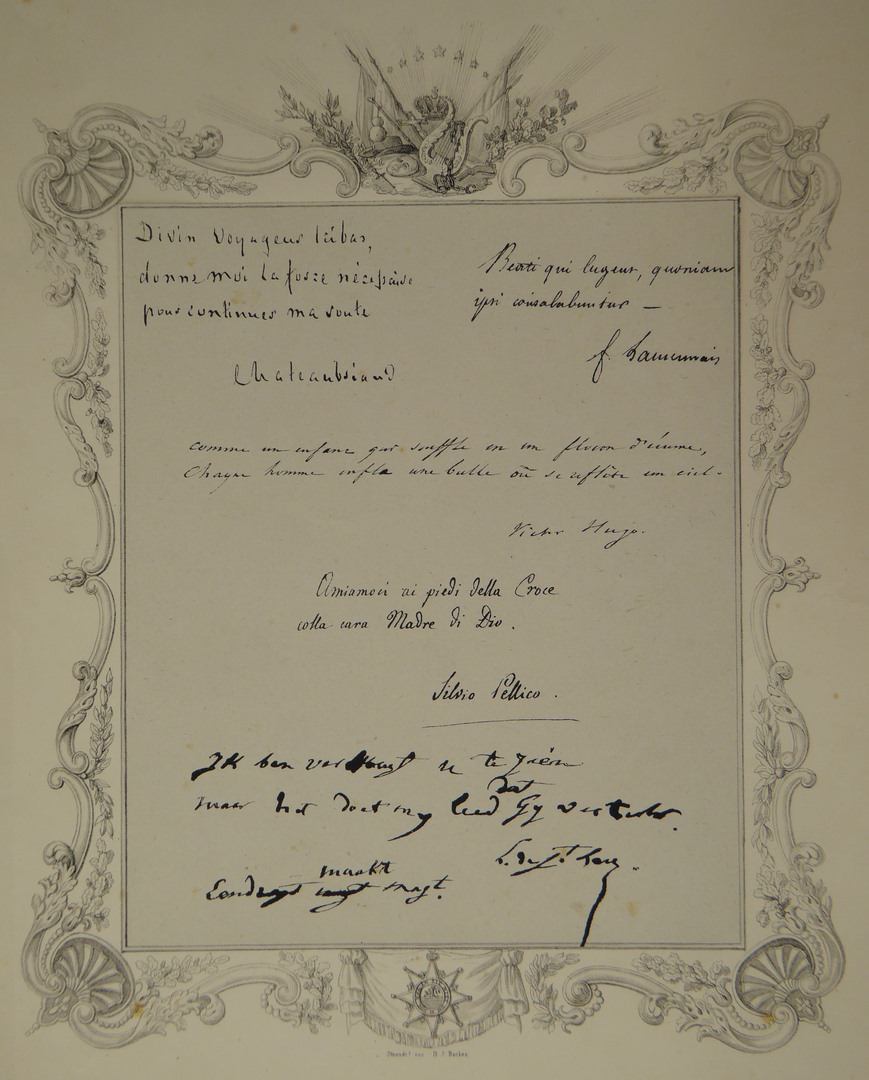 Divin Voyageur ici bas,
donne moi la force nécessaire
pour continuer ma route
Chateaubriand
Beati qui lugent, quoniam
ipsi consolabuntur —
f. Lamennais
comme un enfant qui souffle en un flocon d'écume,
Chaque homme enfle une bulle où se reflète un ciel.
Victor Hugo.
Amiamoci ai piedi della Croce
colla cara Madre di Dio.
Silvio Pellico.
Ik ben verheugt u te zien
maar het doet my leed dat Gy vertrekt.
Eendragt maakt magt.